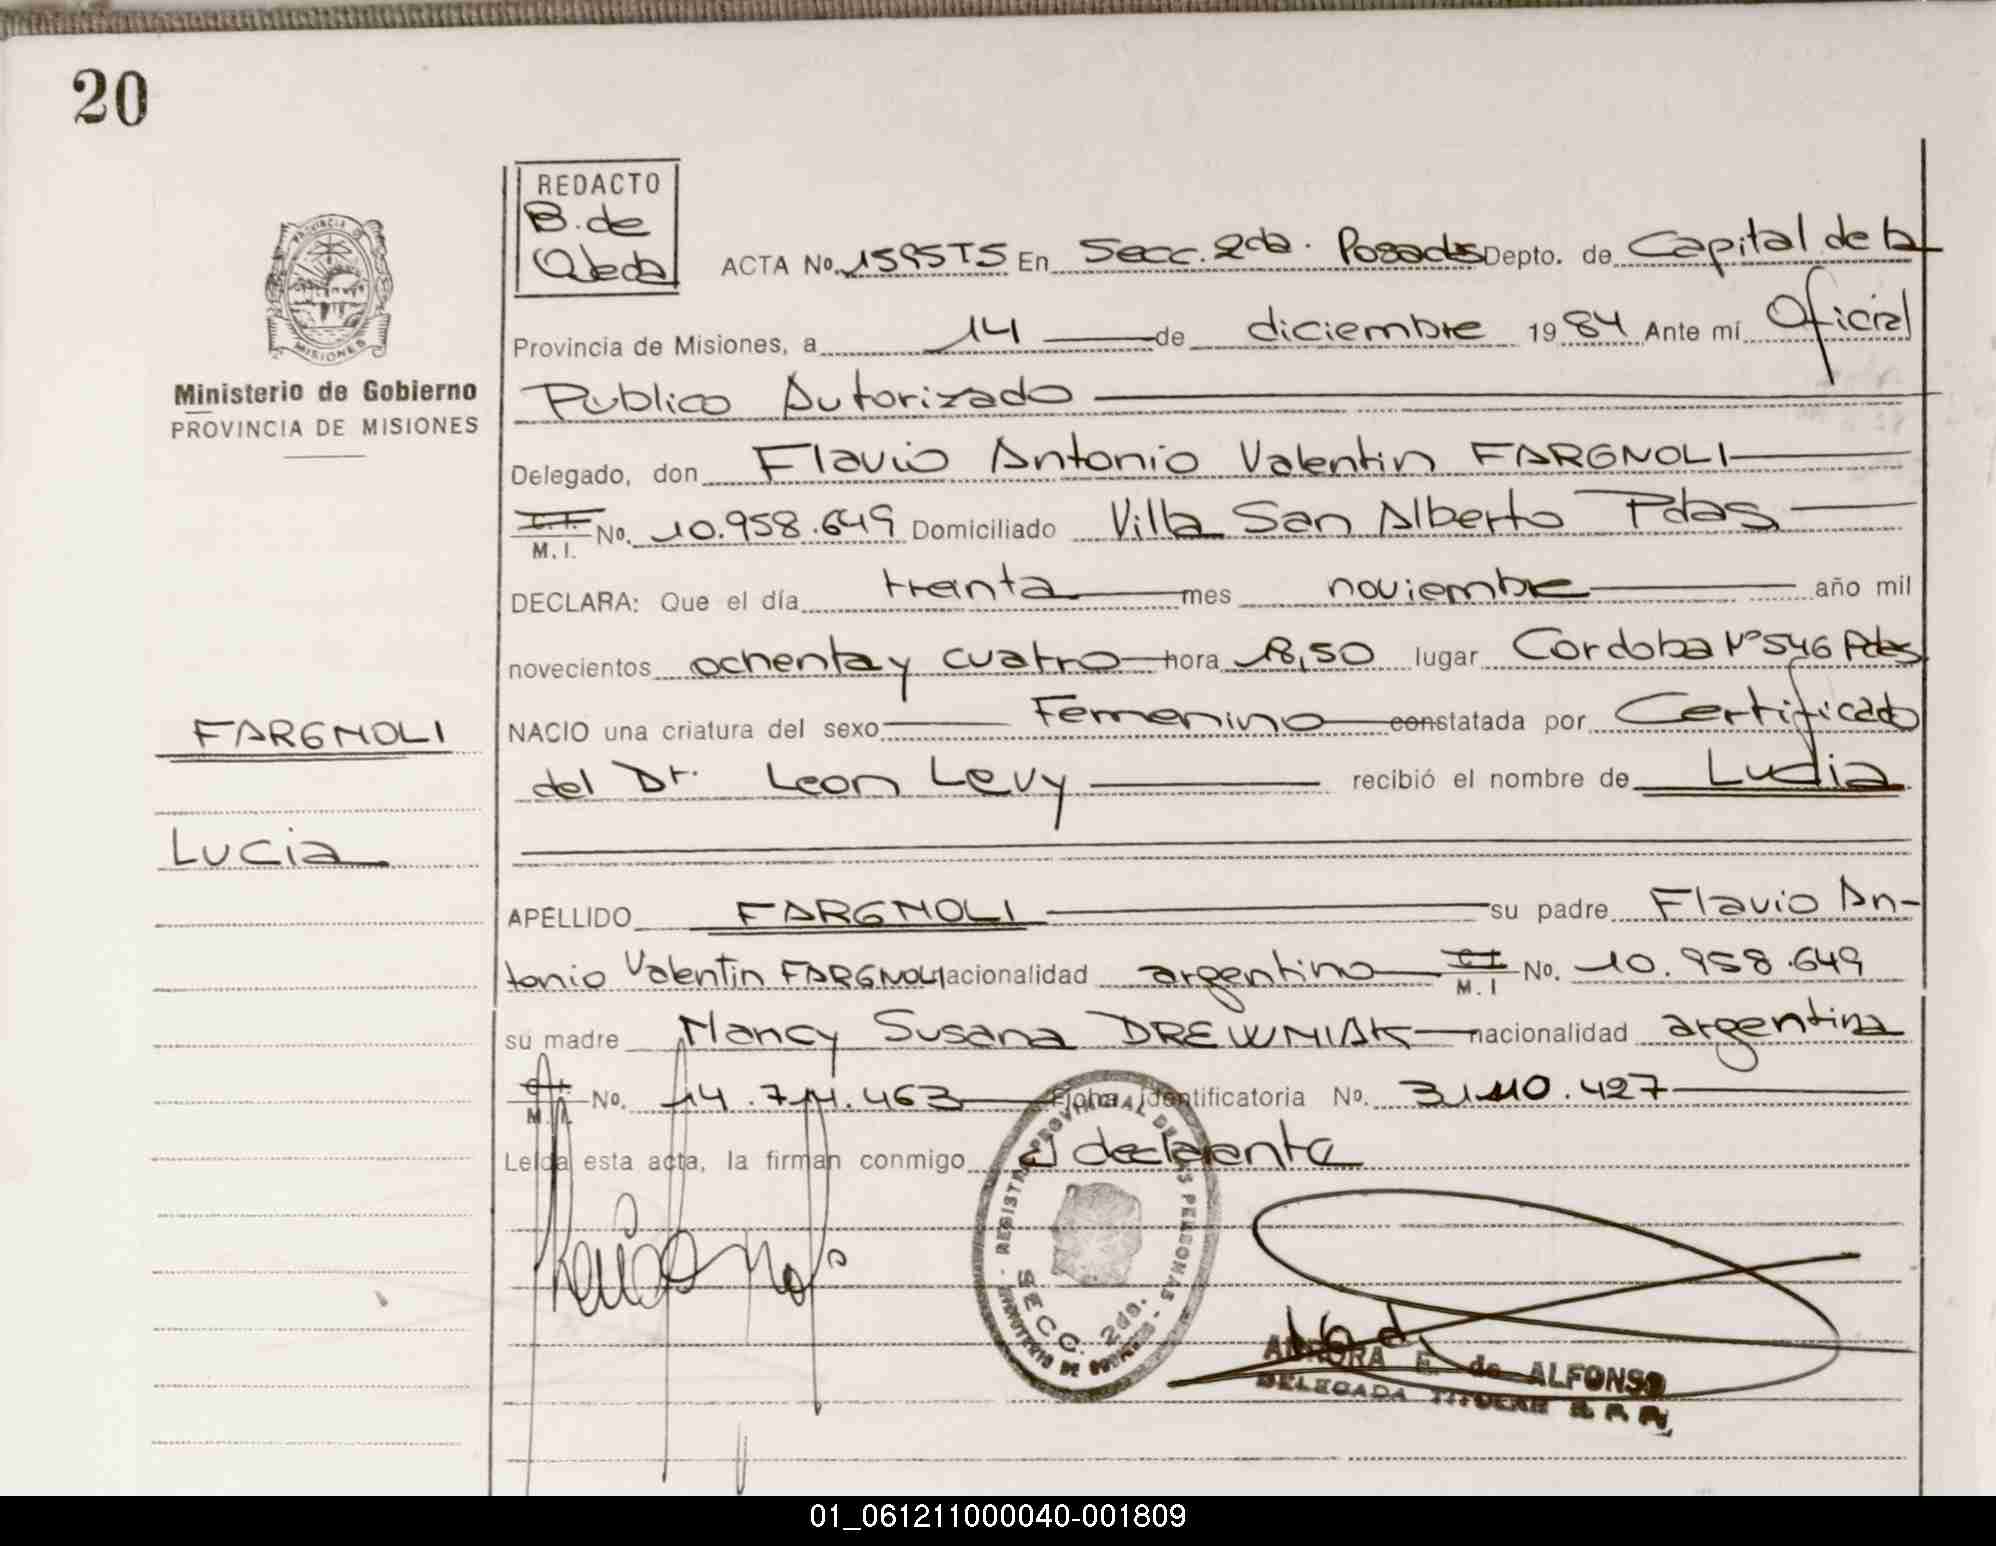 20
REDACTO
B. de
Ojeda
ACTA No. 1595TS En Secc. 2da. Posadas Depto. de Capital de la
Provincia de Misiones, a 14 de diciembre 1984 Ante mí Oficial
Publico Autorizado
Delegado, don Flavio Antonio Valentin FARGNOLI
C. I.
M. I. No. 10.958.649 Domiciliado Villa San Alberto Pdas
DECLARA: Que el día treinta mes noviembre año mil
novecientos ochenta y cuatro hora 18,50 lugar Cordoba Nº 546 Pdas
NACIO una criatura del sexo Femenino constatada por Certificado
del Dr. Leon Levy recibió el nombre de Ludia
APELLIDO FARGNOLI su padre Flavio An-
tonio Valentin FARGNOLI nacionalidad argentino C I
M. I No. 10.958.649
su madre Nancy Susana DREWNIAK nacionalidad argentina
C. I.
M. I. No. 14.711.463 Ficha identificatoria No. 31.110.427
Leída esta acta, la firman conmigo el declarante
PROVINCIA DE
MISIONES
Ministerio de Gobierno
PROVINCIA DE MISIONES
FARGNOLI
Lucia
REGISTRO PROVINCIAL DE LAS PERSONAS - MINISTERIO DE GOBIERNO -
SECC. 2da.
AURORA E. de ALFONSO
DELEGADA TITULAR R. P. P.
01_061211000040-001809